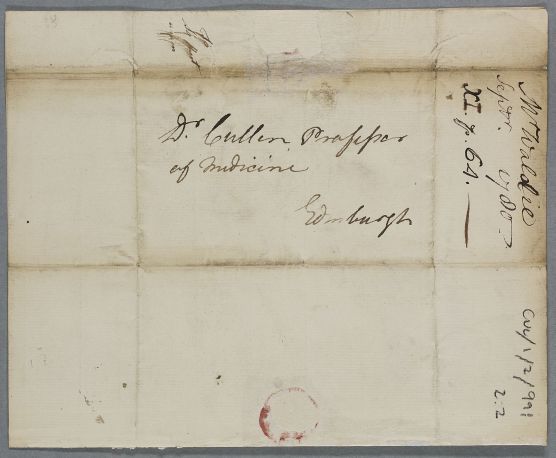 Dr. Cullen Professor
of Medicine
Edinburgh
Mr Waldie
Septr. 1780
XI. p. 64.
Cul/1/2/991
2:2